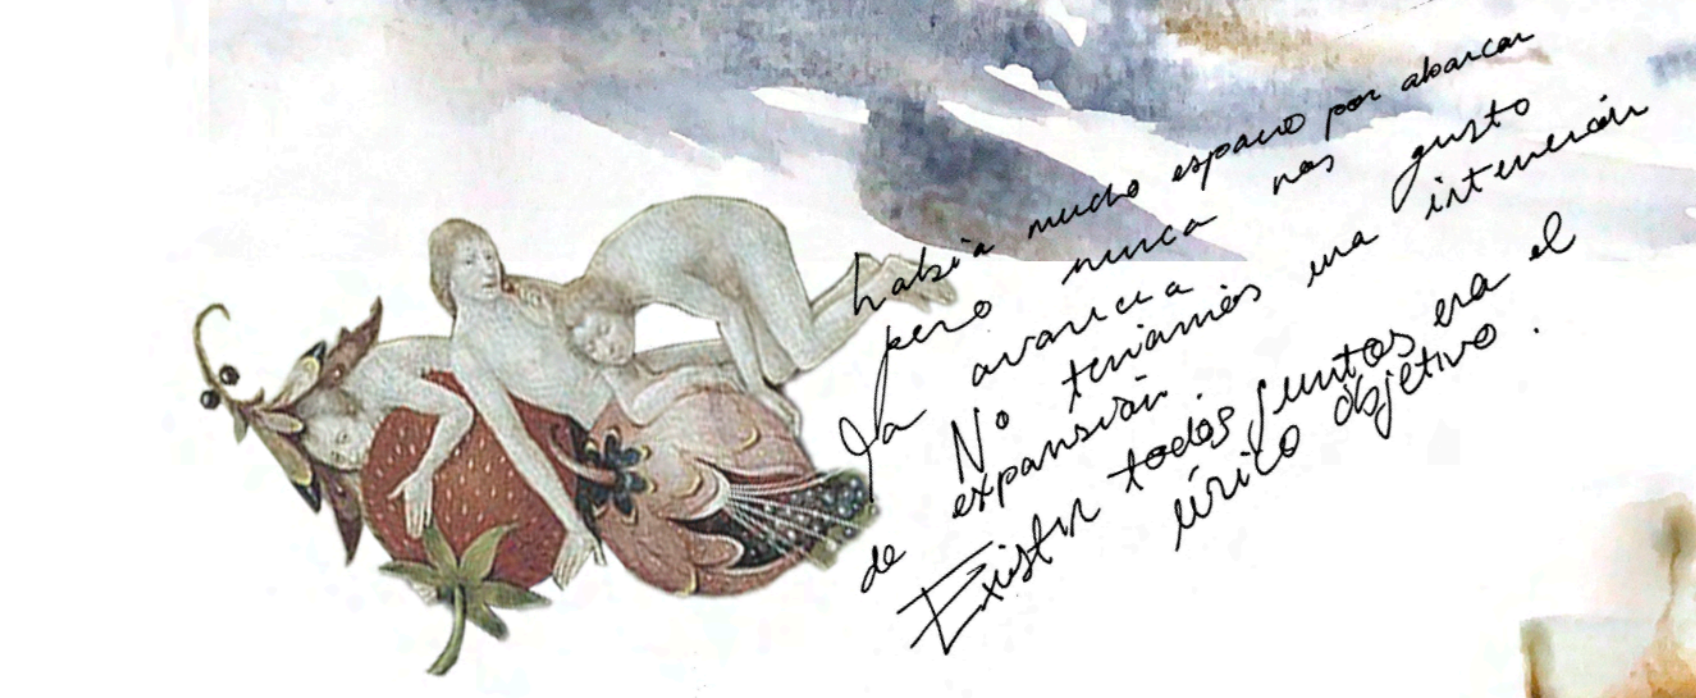 había mucho espacio por abarcar
pero nunca nos gusto
la avaricia
No teniamos una intención
de expansión.
Existir todos juntos era el
único objetivo.